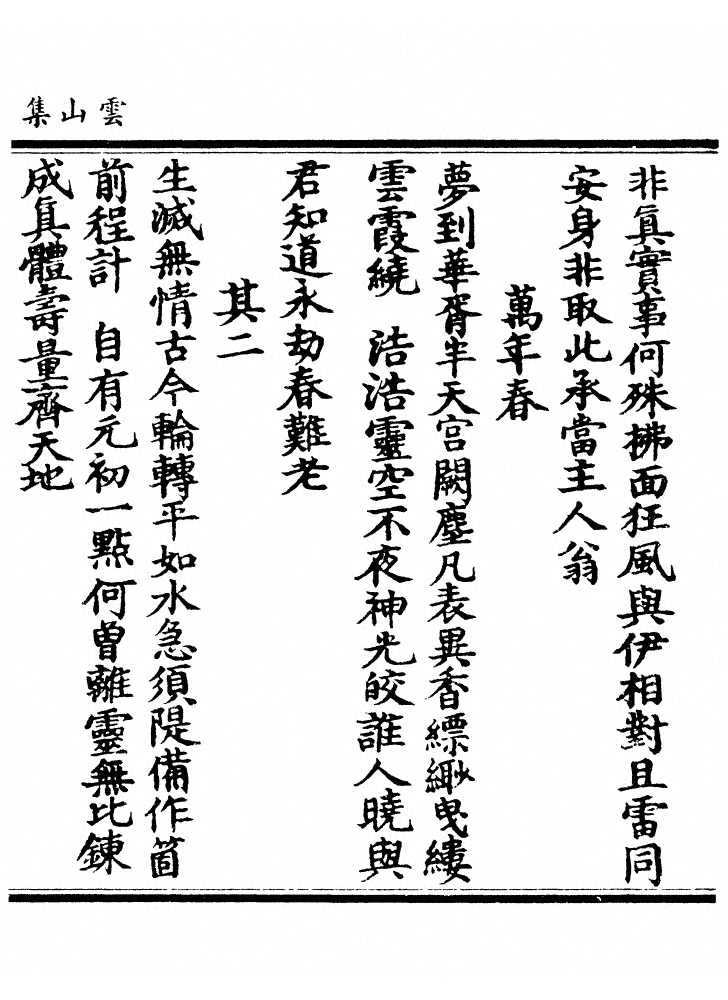 雲山集
非眞實事何殊拂面狂風與伊相對且雷同
安身非取此承當主人翁
萬年春
夢到華胥半天宮闕塵凡表異香縹緲曳縷
雲霞繞　浩浩靈空不夜神光皎誰人曉與
君知道永劫春難老
其二
生滅無情古今輪轉平如水急須隄備作箇
前程計　自有元初一點何曾離靈無比鍊
成眞體壽量齊天地